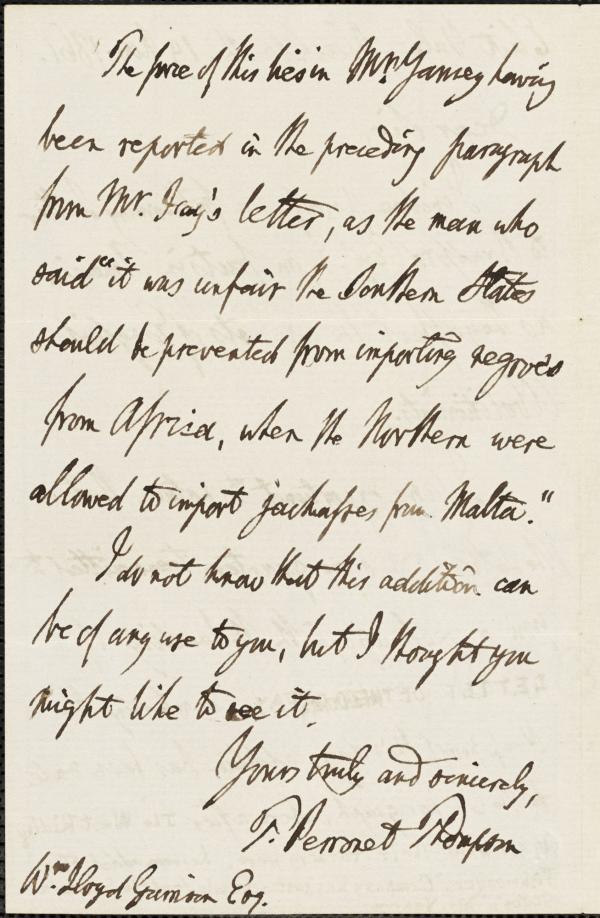 The force of this lies in Mr. Yancey having
been reported in the preceding paragraph
from Mr. Gray's letter, as the man who
said "it was unfair the Southern States
should be prevented from importing negroes
from Africa, when the Northern were
allowed to import jackasses from Malta."
I do not know that this addition can
be of any use to you, but I thought you
might like to see it.
Yours truly and sincerely,
T. Perronet Thompson
Wm. Lloyd Garrison Esq.